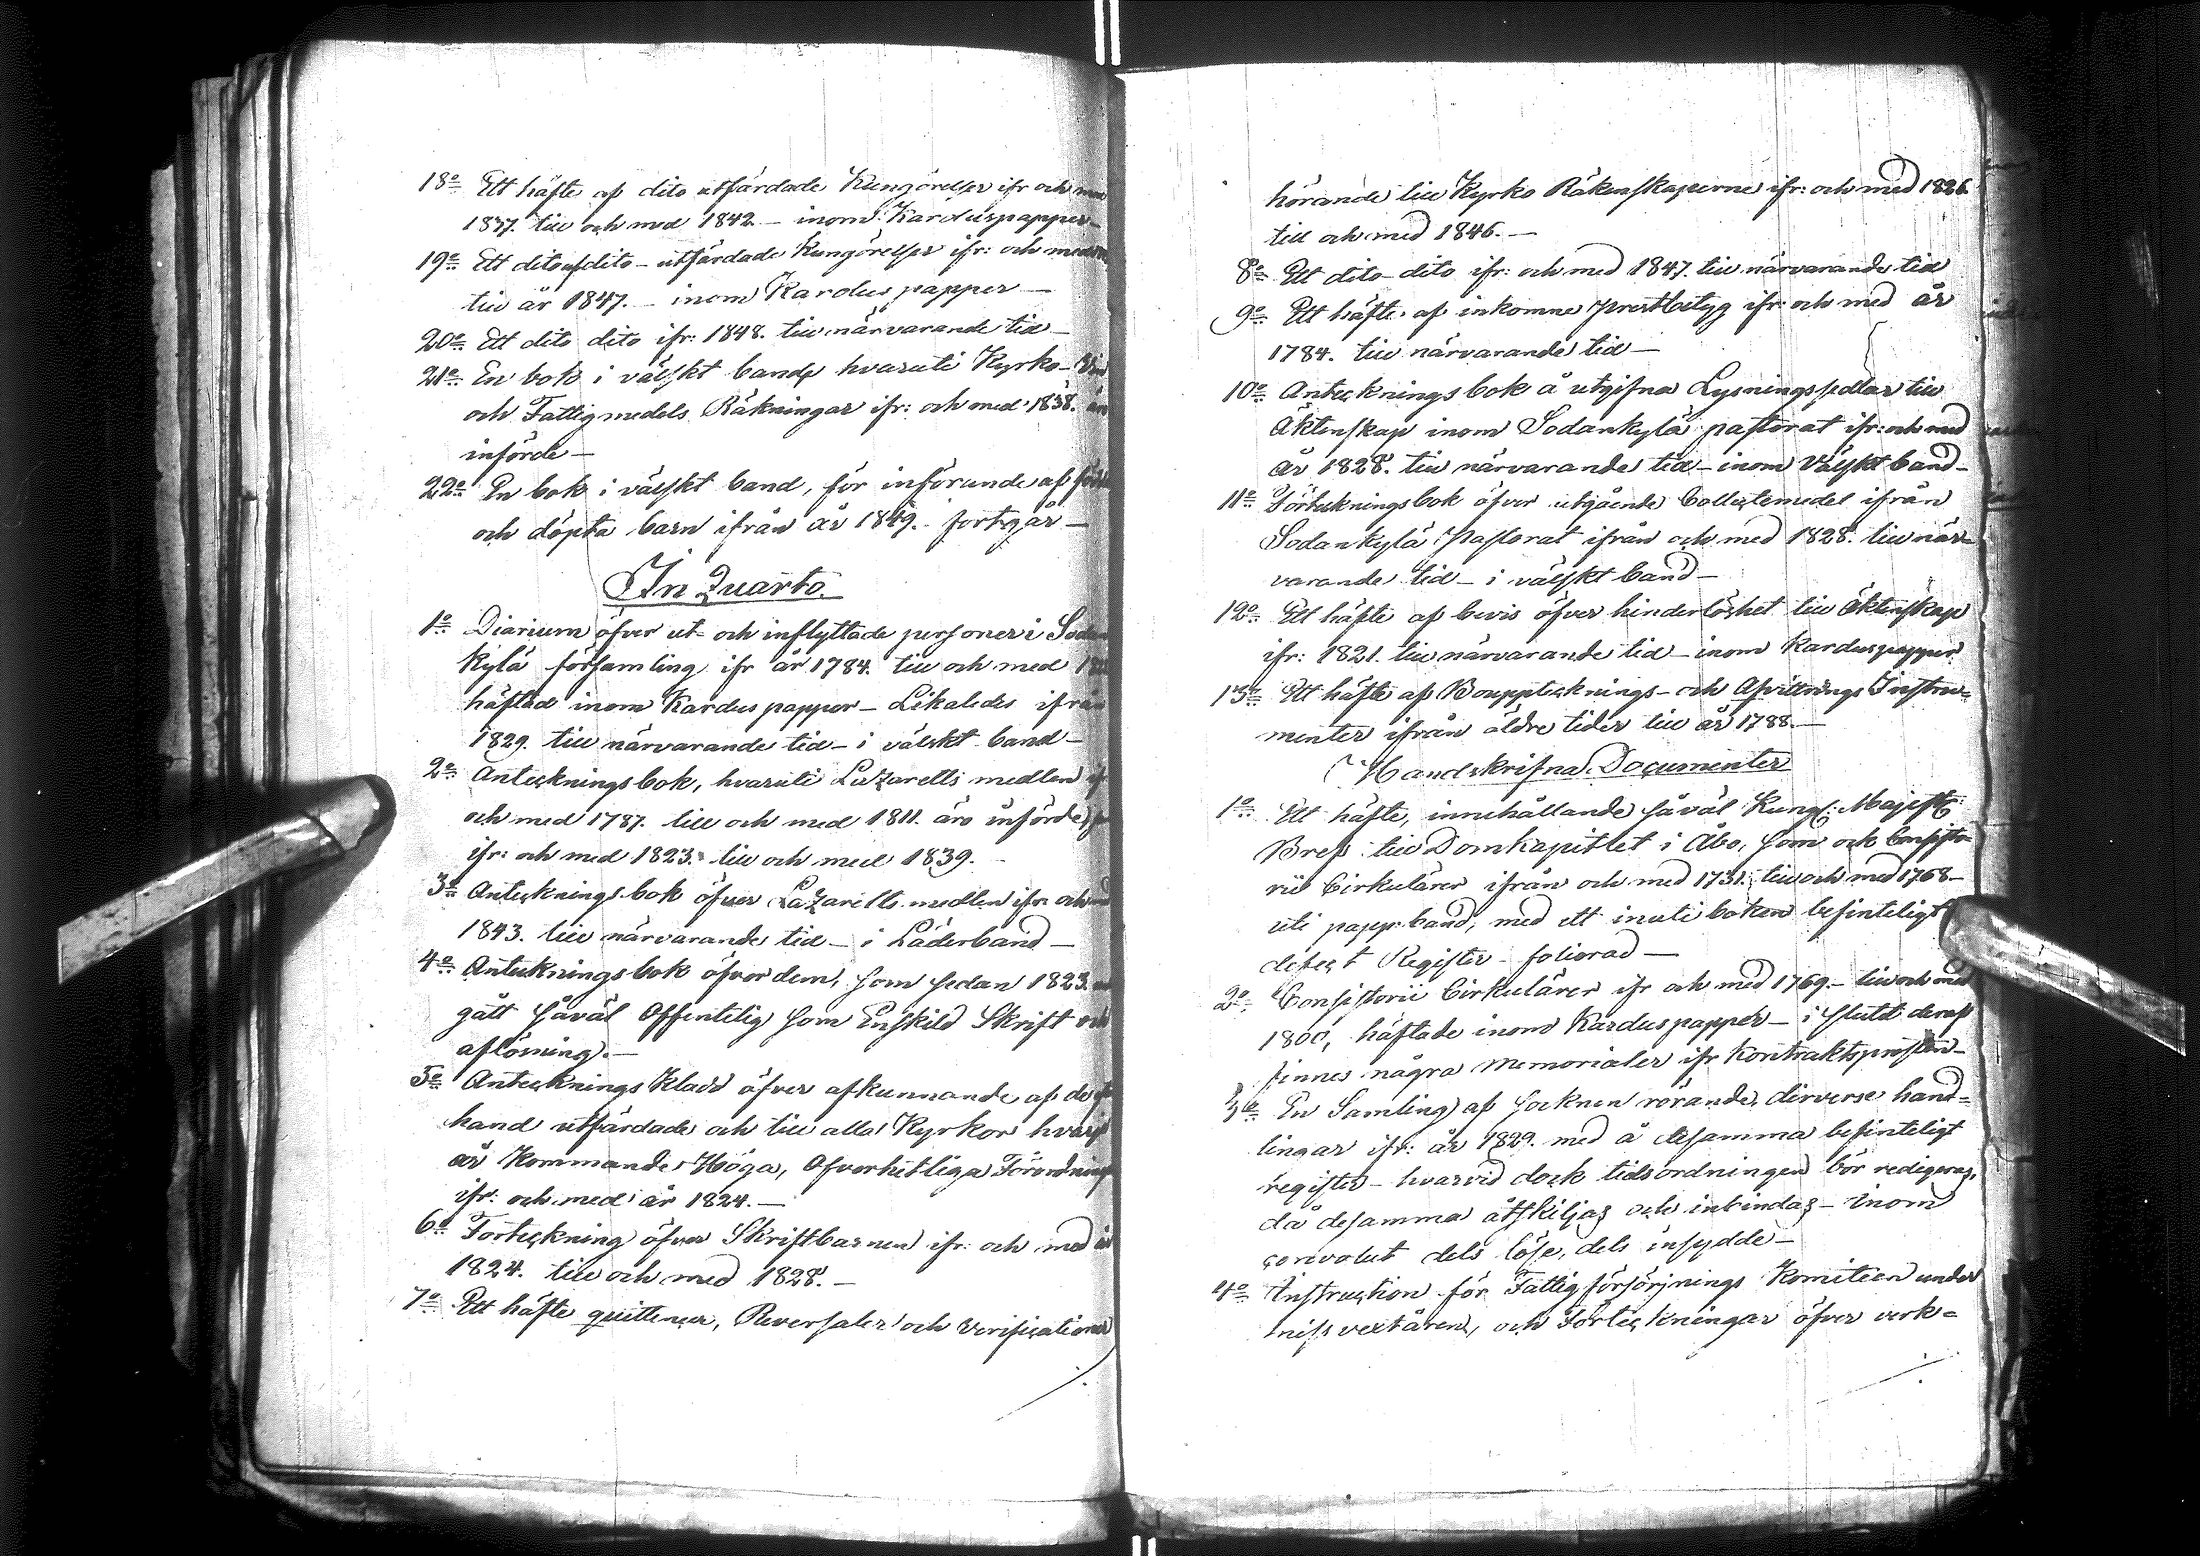 18o Ett häfte af dito utfärdade Kungörelser ifr och
1837. till och med 1842 – inom Karduspapper –
19o Ett dito af dito – utfärdade Kungörelser ifr: och med
till år 1847. – inom Kardus papper –
20o Ett dito dito ifr: 1848. till närvarande tid –
21o En bok i välskt band, hvaruti Kyrko-
och Fattigmedels Räkningar ifr: och med 1838.
införde –
22o En bok i välskt band, för införande af
och döpta barn ifrån år 1849. fortgår –
In Quarto.
1o Diarium öfver ut- och inflyttade personer i Sodan
kylä församling ifr år 1784. till och med
häftad inom Kardus papper – Likaledes ifrån
1829. till närvarande tid – i välskt band –
2o Anteckningsbok, hvaruti Lazaretts medlen
och med 1787. till och med 1811. äro införde,
ifr: och med 1823. till och med 1839. –
3o Anteckningsbok öfver Lazaretts medlen ifr och
1843. till närvarande tid – i Läderband –
4o Anteckningsbok öfver dem, som sedan 1823.
gått såväl Offentelig som Enskild Skrift och
aflösning. –
5o Antecknings Kladd öfver afkunnande af
hand utfärdade och till alla Kyrkor
är Kommande Höga, Öfverhetliga
ifr: och med år 1824. –
6o Förteckning öfver Skriftbarnen ifr: och med
1824. till och med 1828. –
7o Ett häfte quittencer, Reversaler och Verificationer
hörande till Kyrko Räkenskaperne ifr: och med 1826
till och med 1846. –
8o Ett dito dito ifr: och med 1847. till närvarande tid
9o Ett häfte af inkomne prestbetyg ifr: och med år
1784. till närvarande tid –
10o Anteckningsbok å utgifna Lysningssedlar till
Äktenskap inom Sodankylä pastorat ifr: och med
år 1828. till närvarande tid – inom Välskt band –
11o Förteckningsbok öfver utgående Collectemedel ifrån
Sodankylä Pastorat ifrån och med 1828. till när-
varande tid – i välskt band –
12o Ett häfte af bevis öfver hinderlöshet till Äktenskap
ifr: 1821. till närvarande tid – inom Karduspapper
13o Ett häfte af Bouppteknings- och Afvittrings Instru-
menter ifrån äldre tider till år 1788. –
Handskrifna Documenter
1o Ett häfte, innehållande såväl Kungl: Majestts
Bref till Domkapitlet i Åbo, som och Consisto-
rii Cirkulärer ifrån och med 1731. till och med 1768 –
uti papp: band, med ett inuti boken befinteligt
defect Register – foliorad –
2o Consistorii Cirkulärer ifr och med 1769 – till och med
1800, häftade inom Karduspapper – i slutet deraf
finnes några Memorialer ifr Kontraktsprosten –
3o En Samling af Socknen rörande, diverse hand-
lingar ifr: år 1829. med å desamma befinteligt
register – hvarvid dock tidsordningen bör redigeras,
då desamma åtskiljas och inbindas – inom
convolut dels löse, dels insydde –
4o Instruction för Fattigförsörjnings Komiteen under
missvextåren, och Förteckningar öfver verk-